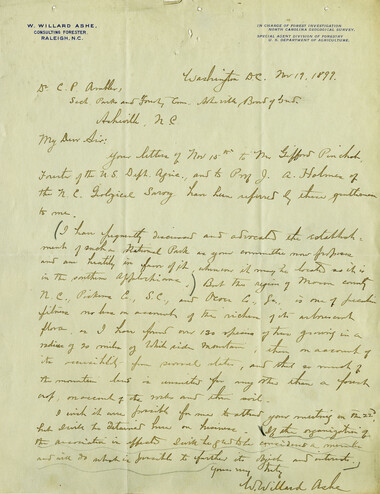 W. WILLARD ASHE.
CONSULTING FORESTER.
RALEIGH, N.C.
IN CHARGE OF FOREST INVESTIGATION
NORTH CAROLINA GEOLOGICAL SURVEY.
SPECIAL AGENT DIVISION OF FORESTRY
U. S. DEPARTMENT OF AGRICULTURE.
Washington D.C. Nov 19, 1899.
Dr C. P. Ambler,
Sect Park and Forestry Com. Asheville, Board of Trade.
Asheville N C
My Dear Sir:
Your letters of Nov 15th to Mr Gifford Pinchot
Forester of the U S Dept. Agric., and to Prof J. A. Holmes of
the N.C. Geological Survey have been referred by these gentlemen
to me.
(I have frequently discussed and advocated the establish-
ment of such a National Park as your committee now propose
and am heartily in favor of it, wherever it may be located as it is
in the southern Appalachians.) But the region of Macon county
N. C., Pickens C., S.C., and
Co., Ga. is one of peculiar
fitness no less on account of the richness of its arborescent
flora, as I have found over 130 species of trees growing in a
radius of 30 miles of Whiteside Mountain, than on account of
its accessibility from several states, and that so much of
the mountain land is unsuited for any other than a forest
crop, on account of the rocks and thin soil.
I wish it were possible for me to attend your meeting on the 22d
but I will be detained here on business. If the organization of
the association is effected I will be glad to be considered a member
and will do what is possible to further its object and interests.
Yours very truly
W. Willard Ashe